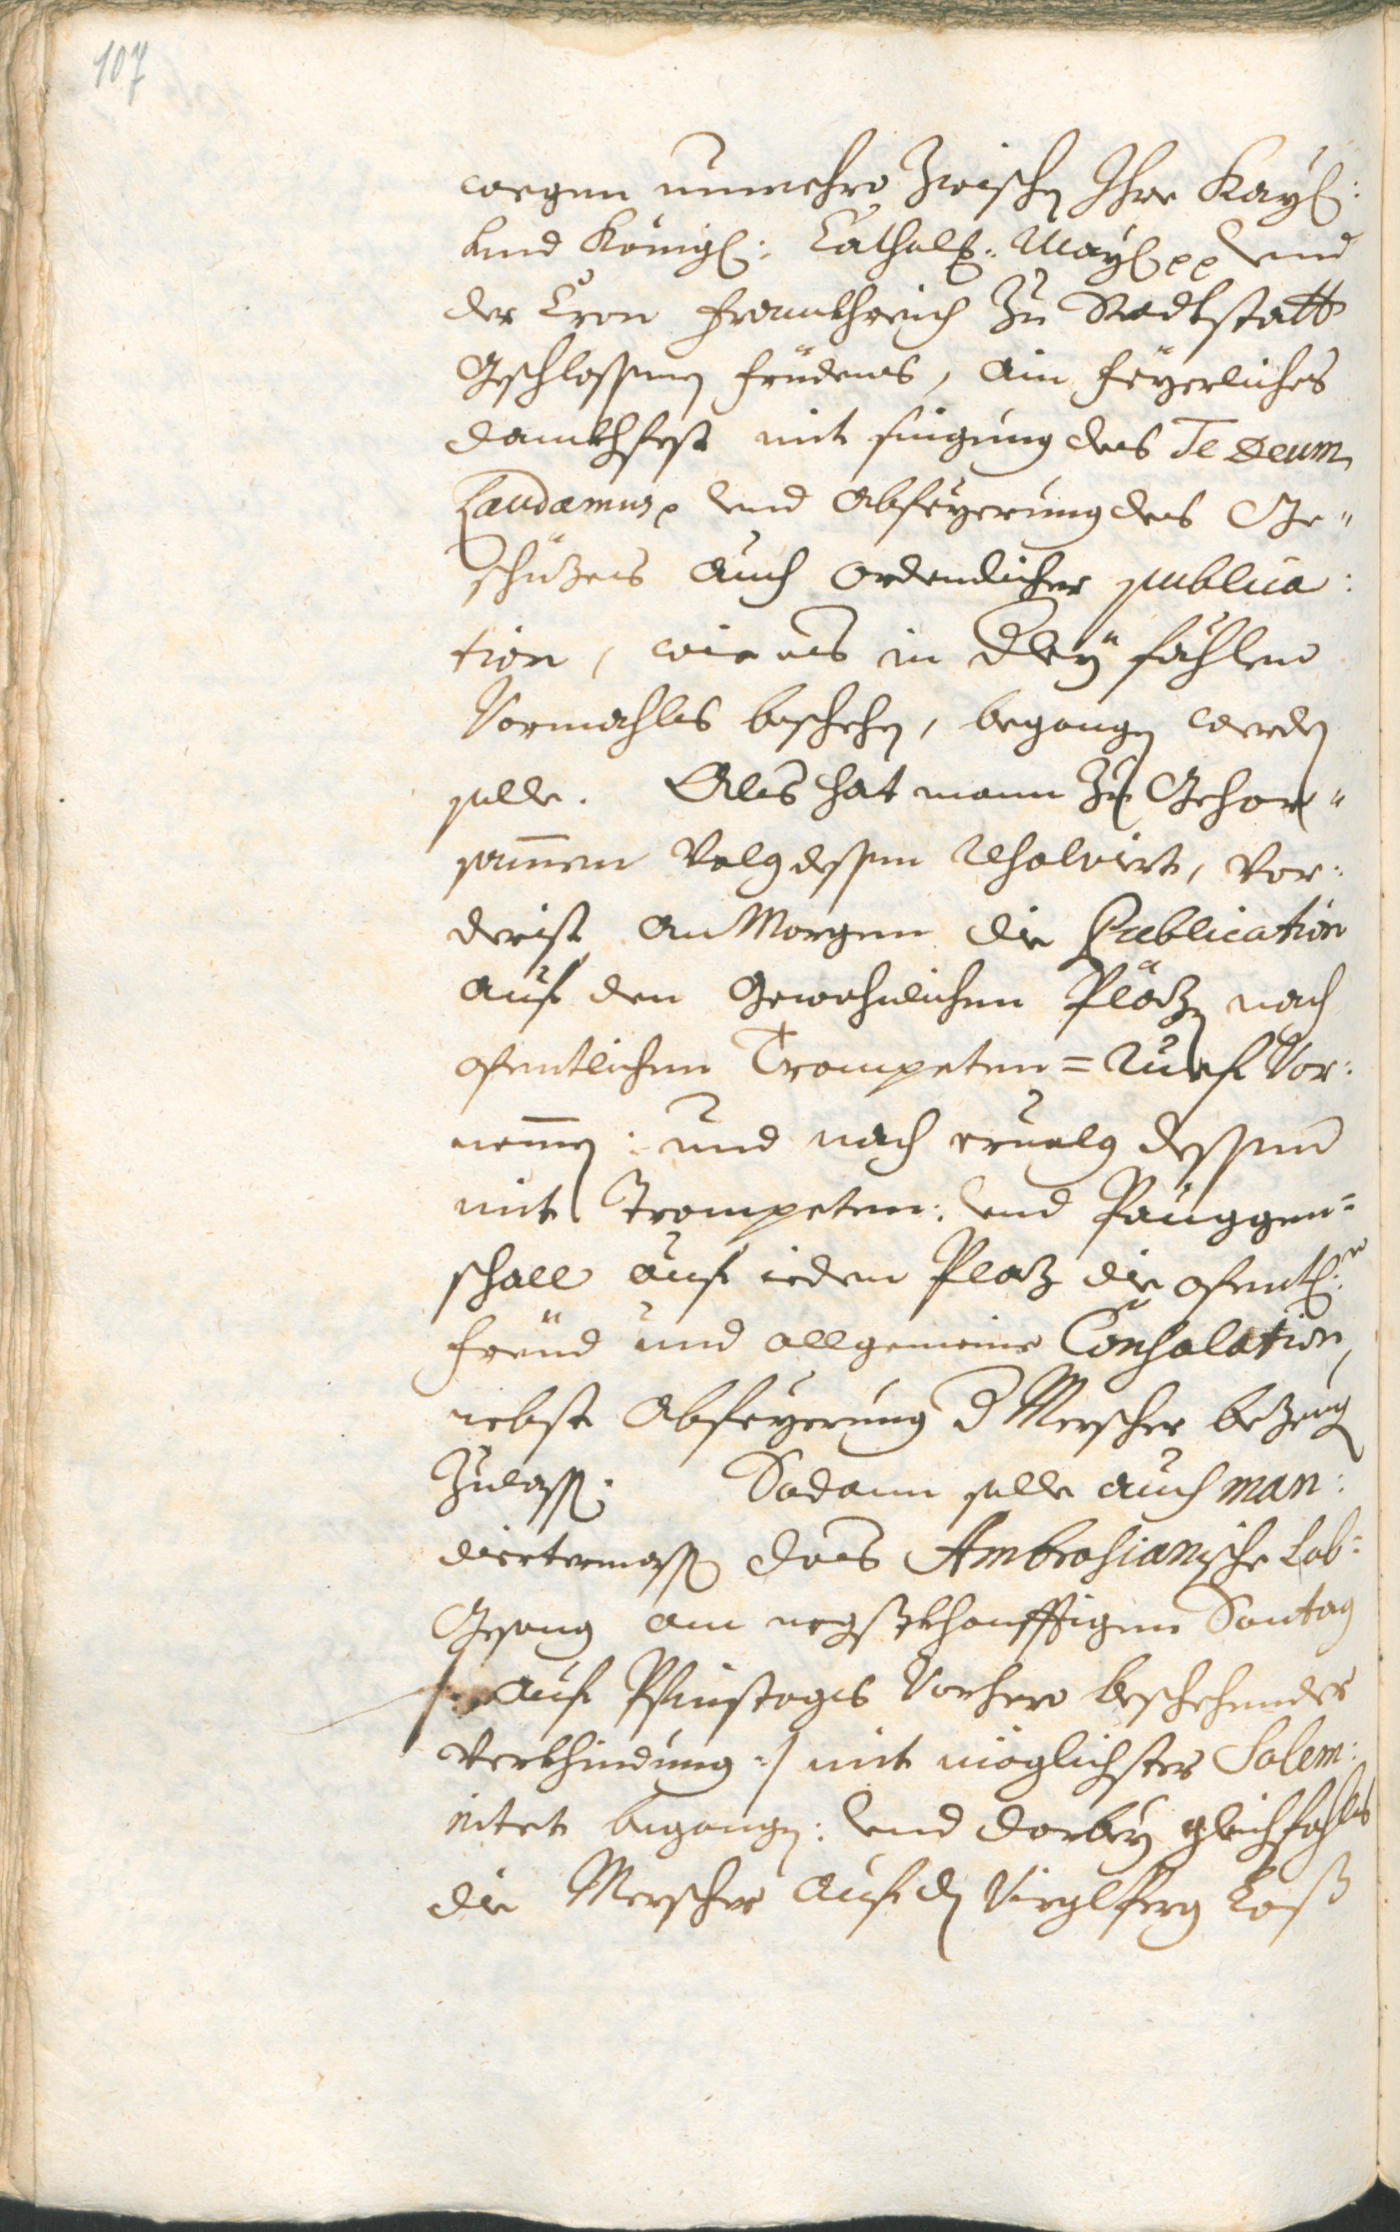 107
wegen nunmehro zwischen Ihro Kayl:
und Königl: Cathol: May: pp und
der Cron Frannkhreich zu Radtstatt
Geschlossenen Fridens, ain feÿerliches
dannkhfest mit singung des Te Deum
Laudamus p und Abfeÿerung des Ge"
schüzes auch ordendlicher publica:
tion, wie es in dergleichen fählen
Vormahls beschehen, begangen werden
solle. Als hat mann zu Gehor"
samen Volg dessen resolvirt, vor:
derist an Morgen die Publication
auf den Gewohnlichen Pläzen nach
ofentlichen Trompeten=Ruef vor:
nemmen: und nach ervolg dessen
mit Trompeten: und Pauggen=
schall auf iedem Plaz die ofentl:e
Freüd und allgemeine Consolation,
nebst Abfeÿerung der Merscher bezeug
zulassen. Sodann solle auch man:
diertermassen das Ambrosianische Lob:
Gesang am negstkhonfftigen Sontag
/: auf Pfinstags vorhero beschehender
verkhindung :/ mit möglichster Solem:
nitet begangen: und darbeÿ gleichfahls
die Merscher auf den Virglberg Loß